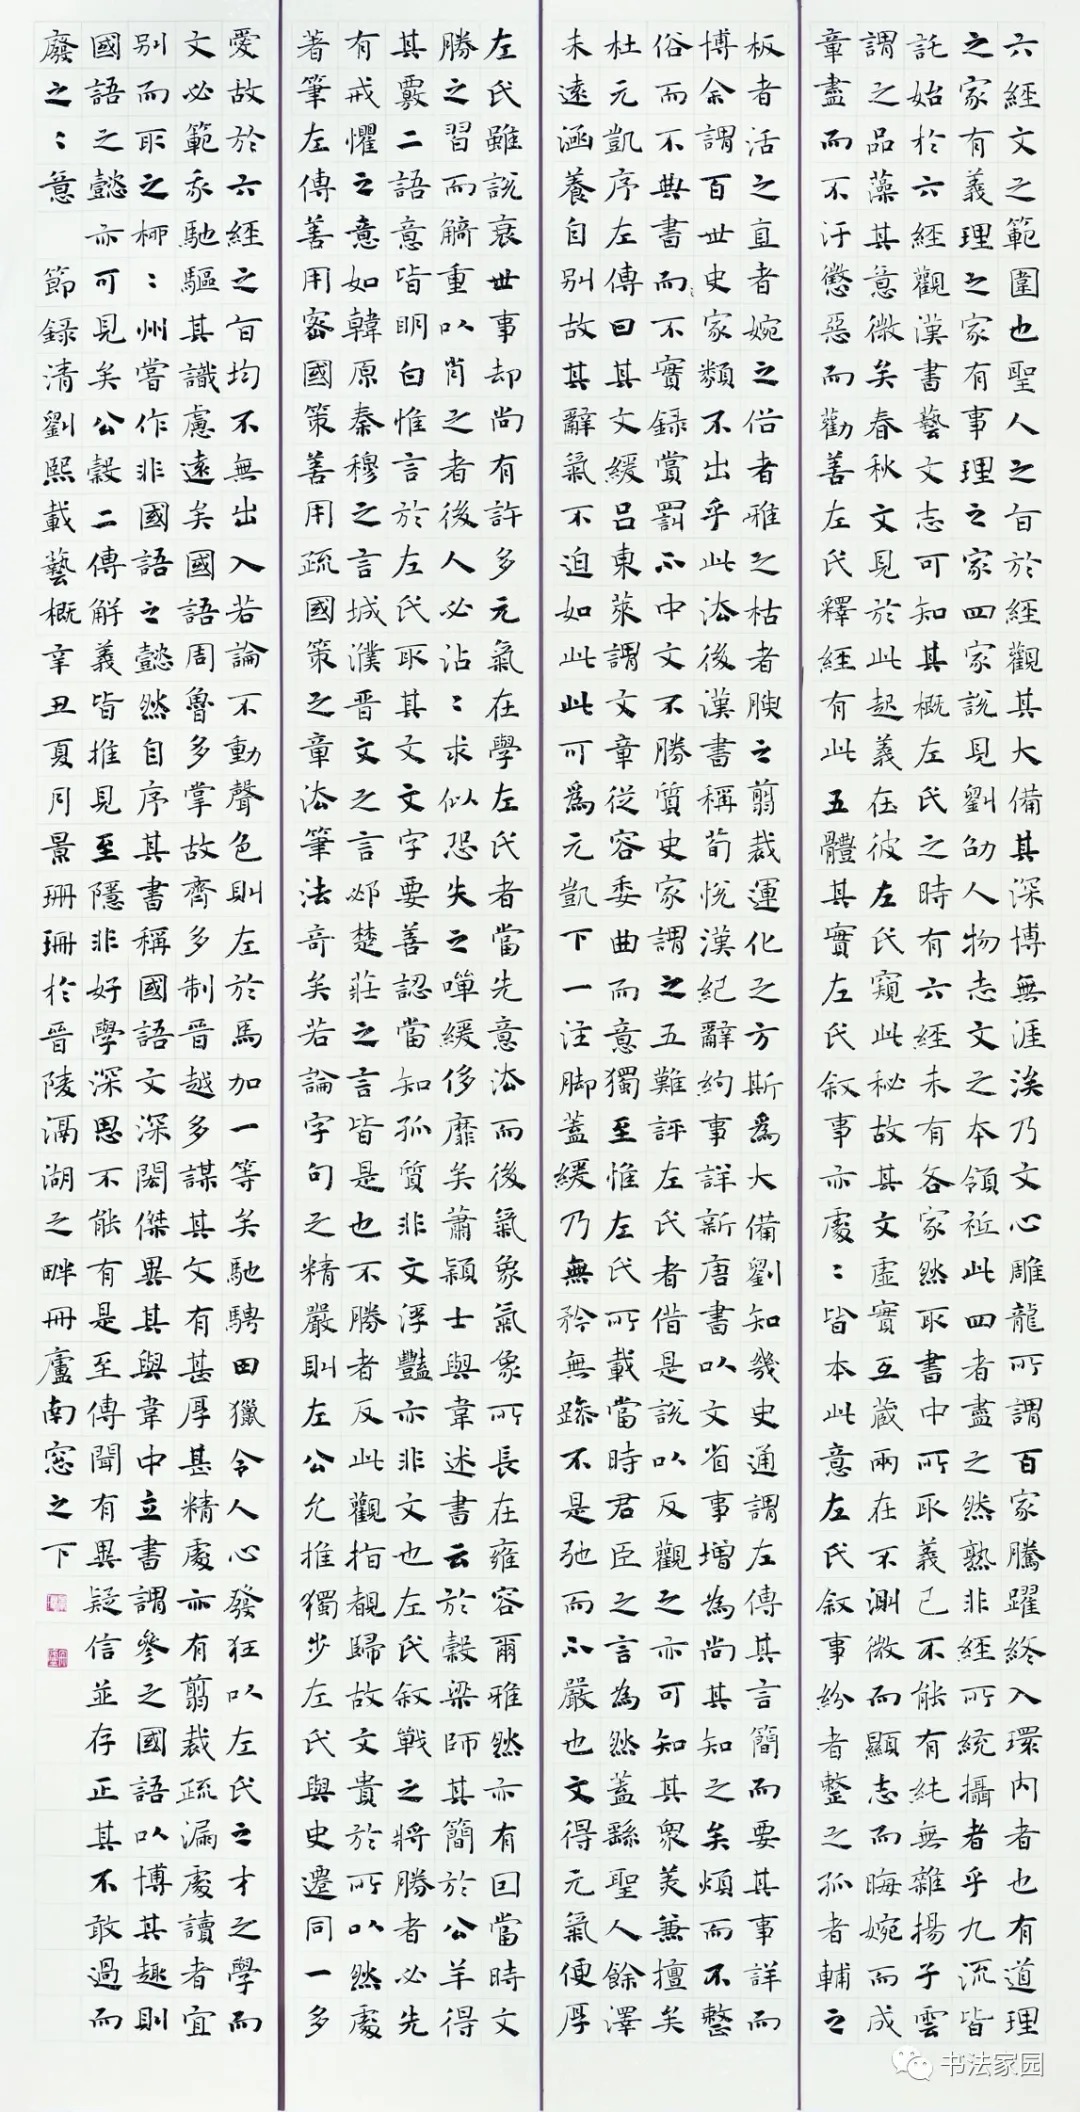 六經文之範圍也聖人之旨於經觀其大備其深博無涯涘乃文心雕龍所謂百家騰躍終入環內者也有道理
之家有義理之家有事理之家四家說見劉劭人物志文之本領祗此四者盡之然熟非經所統攝者乎九流皆
託始於六經觀漢書藝文志可知其概左氏之時有六經未有各家然取書中所取義已不能有純無雜揚子雲
謂之品藻其意微矣春秋文見於此起義在彼左氏窺此秘故其文虛實互藏兩在不測微而顯志而晦婉而成
章盡而不汙懲惡而勸善左氏釋經有此五體其實左氏叙事亦處〻皆本此意左氏叙事紛者整之孤者輔之
板者活之直者婉之俗者雅之枯者腴之翦裁運化之方斯爲大備劉知幾史通謂左傳其言簡而要其事詳而
博余謂百世史家類不出乎此法後漢書稱荀悅漢紀辭約事詳新唐書以文省事增為尚其知之矣煩而不整
俗而不典書而不實録賞罰不中文不勝質史家謂之五難評左氏者借是說以反觀之亦可知其眾美兼擅矣
杜元凱序左傳曰其文緩呂東萊謂文章從容委曲而意獨至惟左氏所載當時君臣之言為然蓋繇聖人餘澤
未遠涵養自别故其辭氣不迫如此此可爲元凱下一注脚蓋緩乃無矜無躁不是弛而不嚴也文得元氣便厚
左氏雖說衰世事却尚有許多元氣在學左氏者當先意法而後氣象氣象所長在雍容爾雅然亦有因當時文
勝之習而觭重以肖之者後人必沾〻求似恐失之嘽緩侈靡矣蕭穎士與韋述書云於穀梁師其簡於公羊得
其覈二語意皆明白惟言於左氏取其文文字要善認當知孤質非文浮豔亦非文也左氏叙戰之將勝者必先
有戒懼之意如韓原秦穆之言城濮晋文之言邲楚莊之言皆是也不勝者反此觀指覩歸故文貴於所以然處
著筆左傳善用密國策善用疏國策之章法筆法奇矣若論字句之精嚴則左公允推獨步左氏與史遷同一多
愛故於六經之旨均不無出入若論不動聲色則左於馬加一等矣馳騁田獵令人心發狂以左氏之才之學而
文必範我馳驅其識慮遠矣國語周魯多掌故齊多制晉越多謀其文有甚厚甚精處亦有翦裁疏漏處讀者宜
别而取之柳〻州嘗作非國語之懿然自序其書稱國語文深閎傑異其與韋中立書謂參之國語以博其趣則
國語之懿亦可見矣公穀二傳解義皆推見至隱非好學深思不能有是至傳聞有異疑信並存正其不敢過而
廢之〻意 節録清劉熙載藝概辛丑夏月景珊珊於晉陵滆湖之畔冊廬南窓之下
书法家园